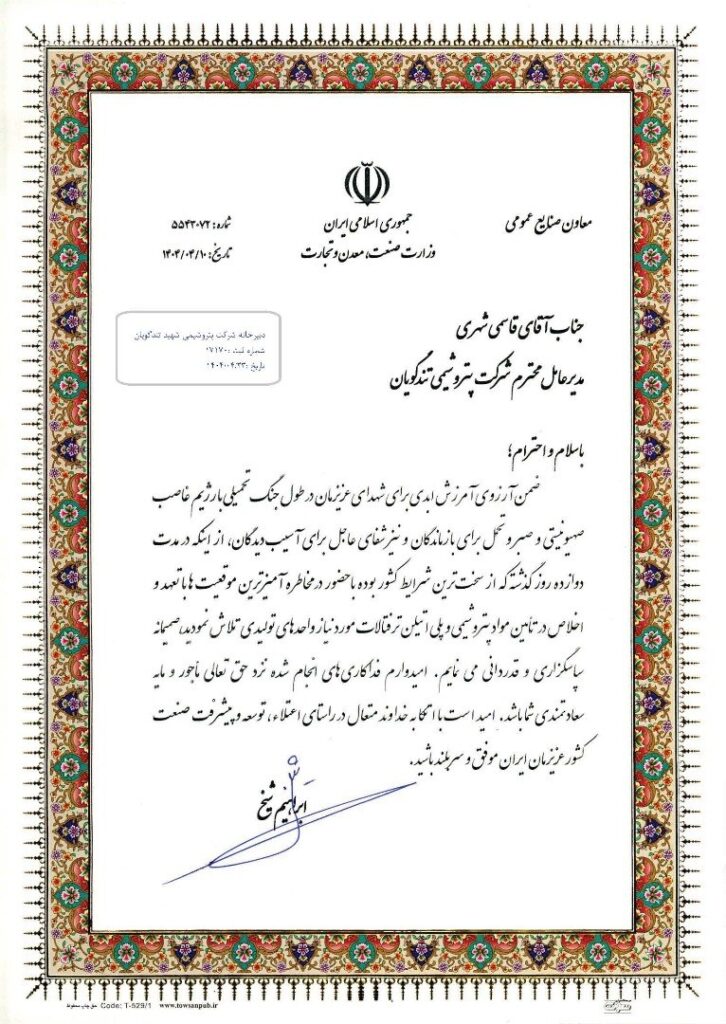 معاون صنایع عمومی
جمهوری اسلامی ایران
وزارت صنعت، معدن و تجارت
شماره: ۵۵۴۳۰۷۲
تاریخ: ۱۴۰۴/۰۴/۱۰
دبیرخانه شرکت پتروشیمی شهید تندگویان
شماره ثبت :۰۷۱۷۰
تاریخ :۱۴۰۴.۰۴.۲۳
جناب آقای قاسمی شهری
مدیرعامل محترم شرکت پتروشیمی تندگویان
با سلام و احترام؛
ضمن آرزوی آمرزش ابدی برای شهدای عزیزمان در طول جنگ تحمیلی با رژیم غاصب
صهیونیستی و صبر و تحمل برای بازماندگان و نیز شفای عاجل برای آسیب دیدگان، از اینکه در مدت
دوازده روز گذشته که از سخت ترین شرایط کشور بوده با حضور در مخاطره آمیزترین موقعیت ها با تعهد و
اخلاص در تأمین مواد پتروشیمی و پلی اتیلن ترفتالات مورد نیاز واحدهای تولیدی تلاش نمودید، صمیمانه
سپاسگزاری و قدردانی می نمایم. امیدوارم فداکاری های انجام شده نزد حق تعالی مأجور و مایه
سعادتمندی شما باشد. امید است با اتکا به خداوند متعال در راستای اعتلاء، توسعه و پیشرفت صنعت
کشور عزیزمان ایران موفق و سربلند باشید.
ابراهیم شیخ
حق چاپ محفوظ Code: T-529/1 www.towsanpub.ir